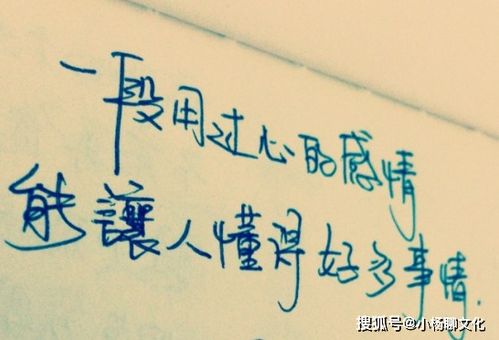 一段用过心的感情
能讓人懂得好多事情.
搜狐号@小杨聊文化